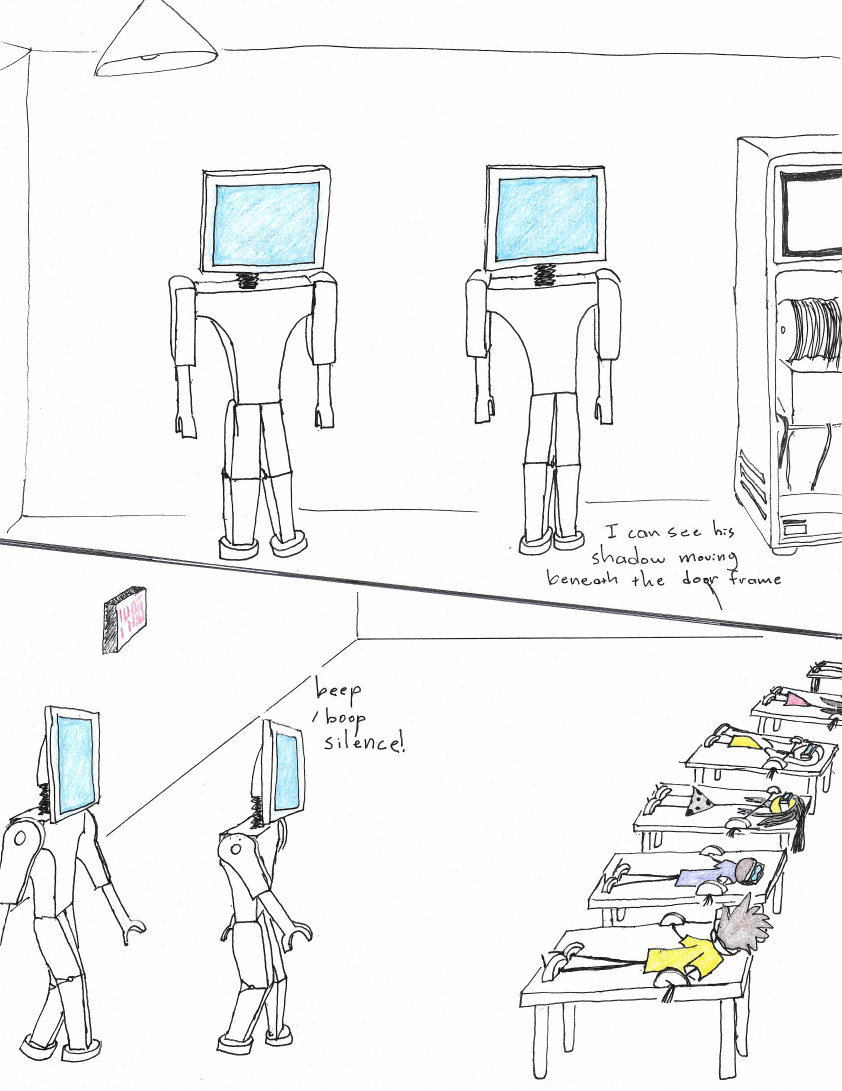 I can see his
shadow moving
beneath the door frame
beep
boop
silence!